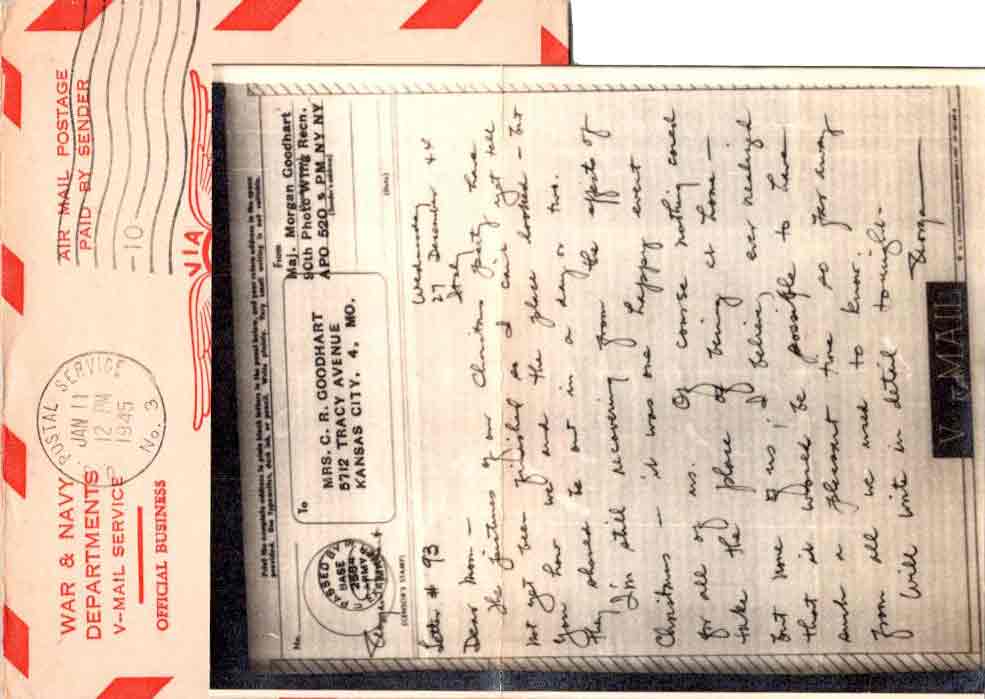 WAR & NAVY
DEPARTMENTS
V-MAIL SERVICE
OFFICIAL BUSINESS
POSTAL SERVICE
JAN 11
12 PM
1945
No. 3
AIR MAIL POSTAGE
PAID BY SENDER
-10-
VIA
Print the complete address in plain block letters in the panel below, and your return address in the space
provided. Use typewriter, dark ink, or pencil. Write plainly. Very small writing is not suitable.
No.
PASSED BY
BASE
2584
ARMY
CENSOR'S STAMP)
To
MRS. C. R. GOODHART
5712 TRACY AVENUE
KANSAS CITY. 4. MO.
From
Maj. Morgan Goodhart
90th Photo Wing Recn.
APO 520 % PM NY NY
(Sender's address)
(Date)
Letter # 93
Wednesday
27 December 44
Italy
Dear Mom -
The pictures of our Christmas party have
not yet been finished so I can't yet tell
you how we and the place looked - but
they should be out in a day or two.
I'm still recovering from the effects of
Christmas - it was one happy event
for all of us. Of course nothing could
take the place of being at home -
but none of us, I believe, ever realized
that it would be possible to have
such a pleasant time so far away
from all we used to know.
Will write in detail tonight.
Morgan
V-MAIL